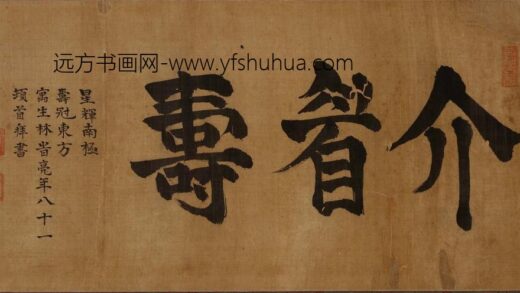 远方书画网-www.yfshuhua.com
介眉壽
星輝南極
壽冠東方
寓生林年八十一
頓首拜書